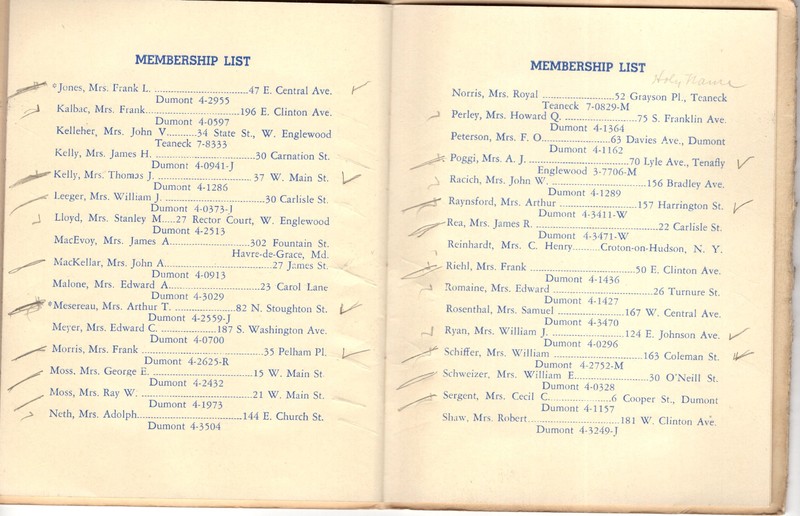 MEMBERSHIP LIST
*Jones, Mrs. Frank L. ........................47 E. Central Ave.
Dumont 4-2955
Kalbac, Mrs. Frank........................196 E. Clinton Ave.
Dumont 4-0597
Kelleher, Mrs. John V.........34 State St., W. Englewood
Teaneck 7-8333
Kelly, Mrs. James H. ........................30 Carnation St.
Dumont 4-0941-J
Kelly, Mrs. Thomas J. ........................37 W. Main St.
Dumont 4-1286
Leeger, Mrs. William J. ........................30 Carlisle St.
Dumont 4-0373-J
Lloyd, Mrs. Stanley M.....27 Rector Court, W. Englewood
Dumont 4-2513
MacEvoy, Mrs. James A........................302 Fountain St.
Havre-de-Grace, Md.
MacKellar, Mrs. John A........................27 James St.
Dumont 4-0913
Malone, Mrs. Edward A........................23 Carol Lane
Dumont 4-3029
*Mesereau, Mrs. Arthur T. ................82 N. Stoughton St.
Dumont 4-2559-J
Meyer, Mrs. Edward C. ................187 S. Washington Ave.
Dumont 4-0700
Morris, Mrs. Frank ........................35 Pelham Pl.
Dumont 4-2625-R
Moss, Mrs. George E. ........................15 W. Main St.
Dumont 4-2432
Moss, Mrs. Ray W. ........................21 W. Main St.
Dumont 4-1973
Neth, Mrs. Adolph........................144 E. Church St.
Dumont 4-3504
MEMBERSHIP LIST
Holy Name
Norris, Mrs. Royal ....................52 Grayson Pl., Teaneck
Teaneck 7-0829-M
Perley, Mrs. Howard Q. ................75 S. Franklin Ave.
Dumont 4-1364
Peterson, Mrs. F. O................63 Davies Ave., Dumont
Dumont 4-1162
Poggi, Mrs. A. J. ........................70 Lyle Ave., Tenafly
Englewood 3-7706-M
Racich, Mrs. John W. ....................156 Bradley Ave.
Dumont 4-1289
Raynsford, Mrs. Arthur ................157 Harrington St.
Dumont 4-3411-W
Rea, Mrs. James R. ........................22 Carlisle St.
Dumont 4-3471-W
Reinhardt, Mrs. C. Henry........Croton-on-Hudson, N. Y.
Riehl, Mrs. Frank ........................50 E. Clinton Ave.
Dumont 4-1436
Romaine, Mrs. Edward ....................26 Turnure St.
Dumont 4-1427
Rosenthal, Mrs. Samuel ................167 W. Central Ave.
Dumont 4-3470
Ryan, Mrs. William J. ................124 E. Johnson Ave.
Dumont 4-0296
Schiffer, Mrs. William ....................163 Coleman St.
Dumont 4-2752-M
Schweizer, Mrs. William E....................30 O'Neill St.
Dumont 4-0328
Sergent, Mrs. Cecil C.................6 Cooper St., Dumont
Dumont 4-1157
Shaw, Mrs. Robert........................181 W. Clinton Ave.
Dumont 4-3249-J